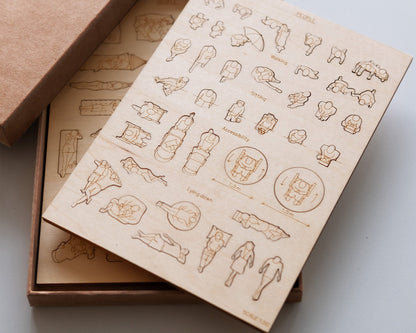 PEOPLE
Walking
Sitting
Accessibility
Lying down